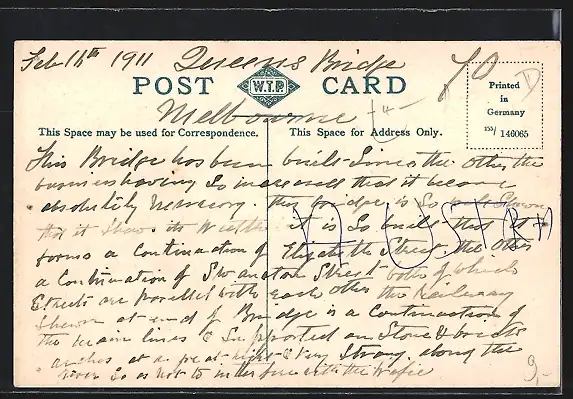 Feb 11th 1911 Queens Bridge
POST W.T.P. CARD
Melbourne
70
D
Printed
in
Germany
155/146065
This Space may be used for Correspondence.
This Space for Address Only.
This Bridge has been built since the other the
business having so increased that it became
absolutely necessary. this bridge is so built shown
that it shows its width it is so built that it
forms a Continuation of Elizabeth Street. the other
a Continuation of Swanston Street both of which
Streets are parallel with each other the Railway
shewn at end of Bridge is a Continuation of
the main lines & supported on Stone & brick
arches at a great height & very strong. along the
river so as not to interfere with the trafic
AUSTR
9,-